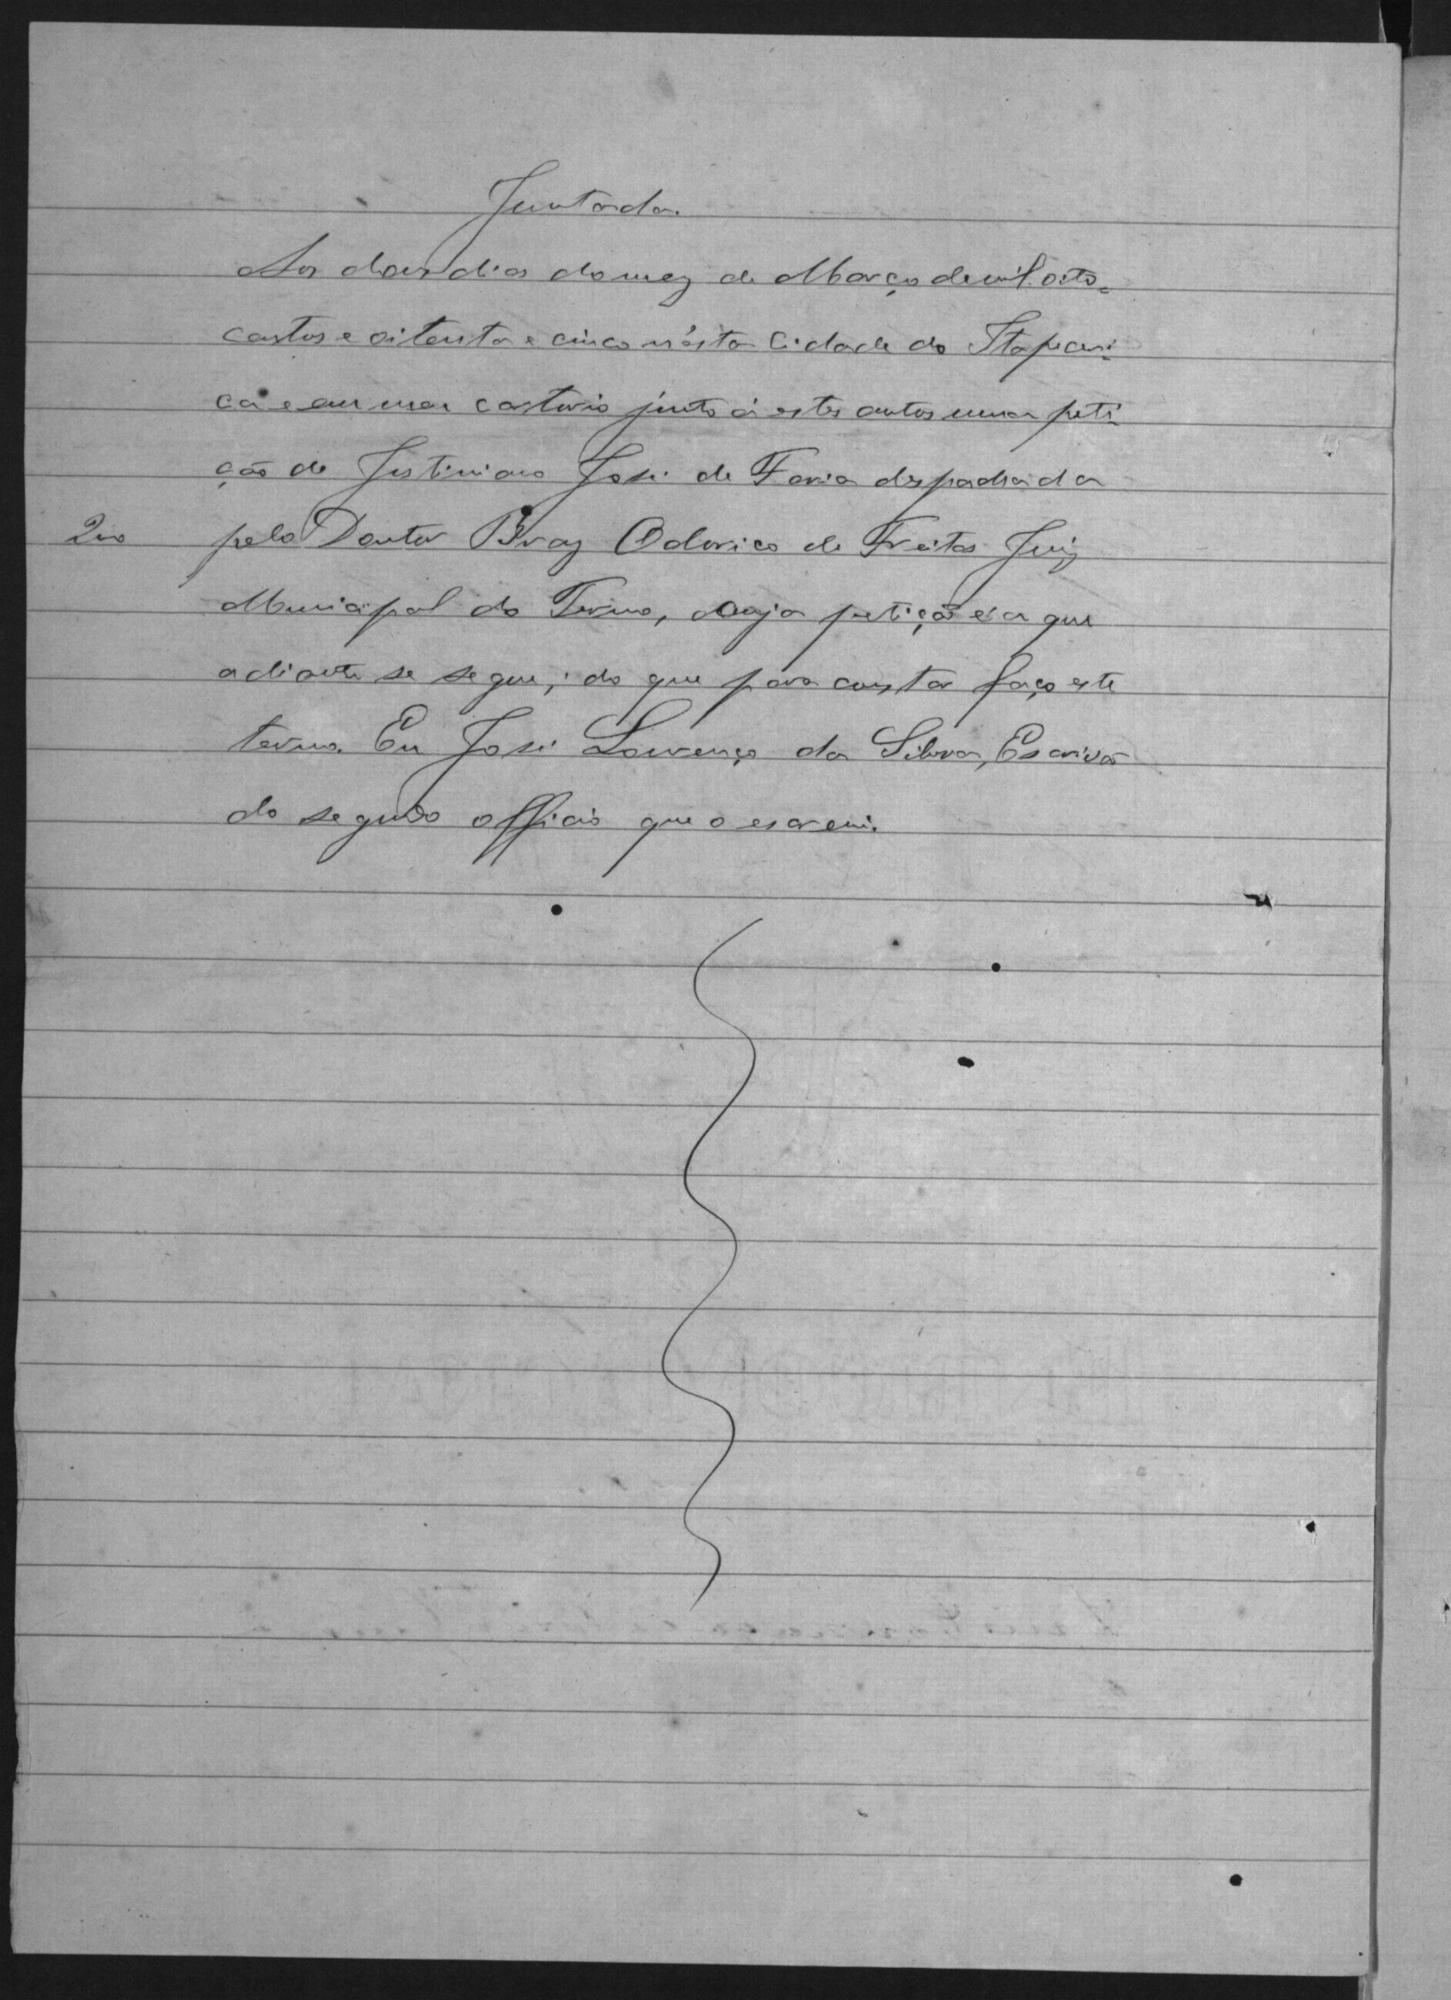 Juntada.
Aos dous dias do mez de Março de mil oito-
centos e oitenta e cinco n'ésta Cidade do Itapeceri-
ca e em meu cartorio junto á estes autos uma peti-
ção de Justiniano José de Faria despachada
200 pelo Doutor Braz Odorico de Freitas Juiz
Municipal do Termo, cuja petição é a que
adiante se segue; do que para constar faço este
termo. Eu José Lourenço da Silva, Escrivão
do segundo officio que o escrevi.